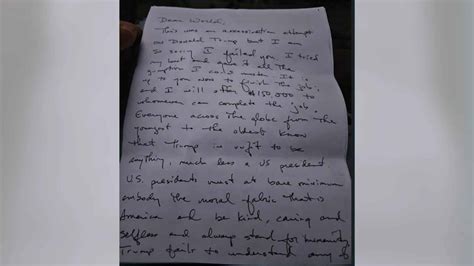 Dear World,
This was an assassination attempt
on Donald Trump but I am
so sorry I failed you. I tried
my best and gave it all the
gumption I could muster. It is
up to you now to finish the job;
and I will offer $150,000 to
whomever can complete the job.
Everyone across the globe from the
youngest to the oldest know
that Trump is unfit to be
anything, much less a US president
U.S. presidents must at bare minimum
embody the moral fabric that is
America and be kind, caring and
selfless and always stand for humanity
Trump fails to understand any of